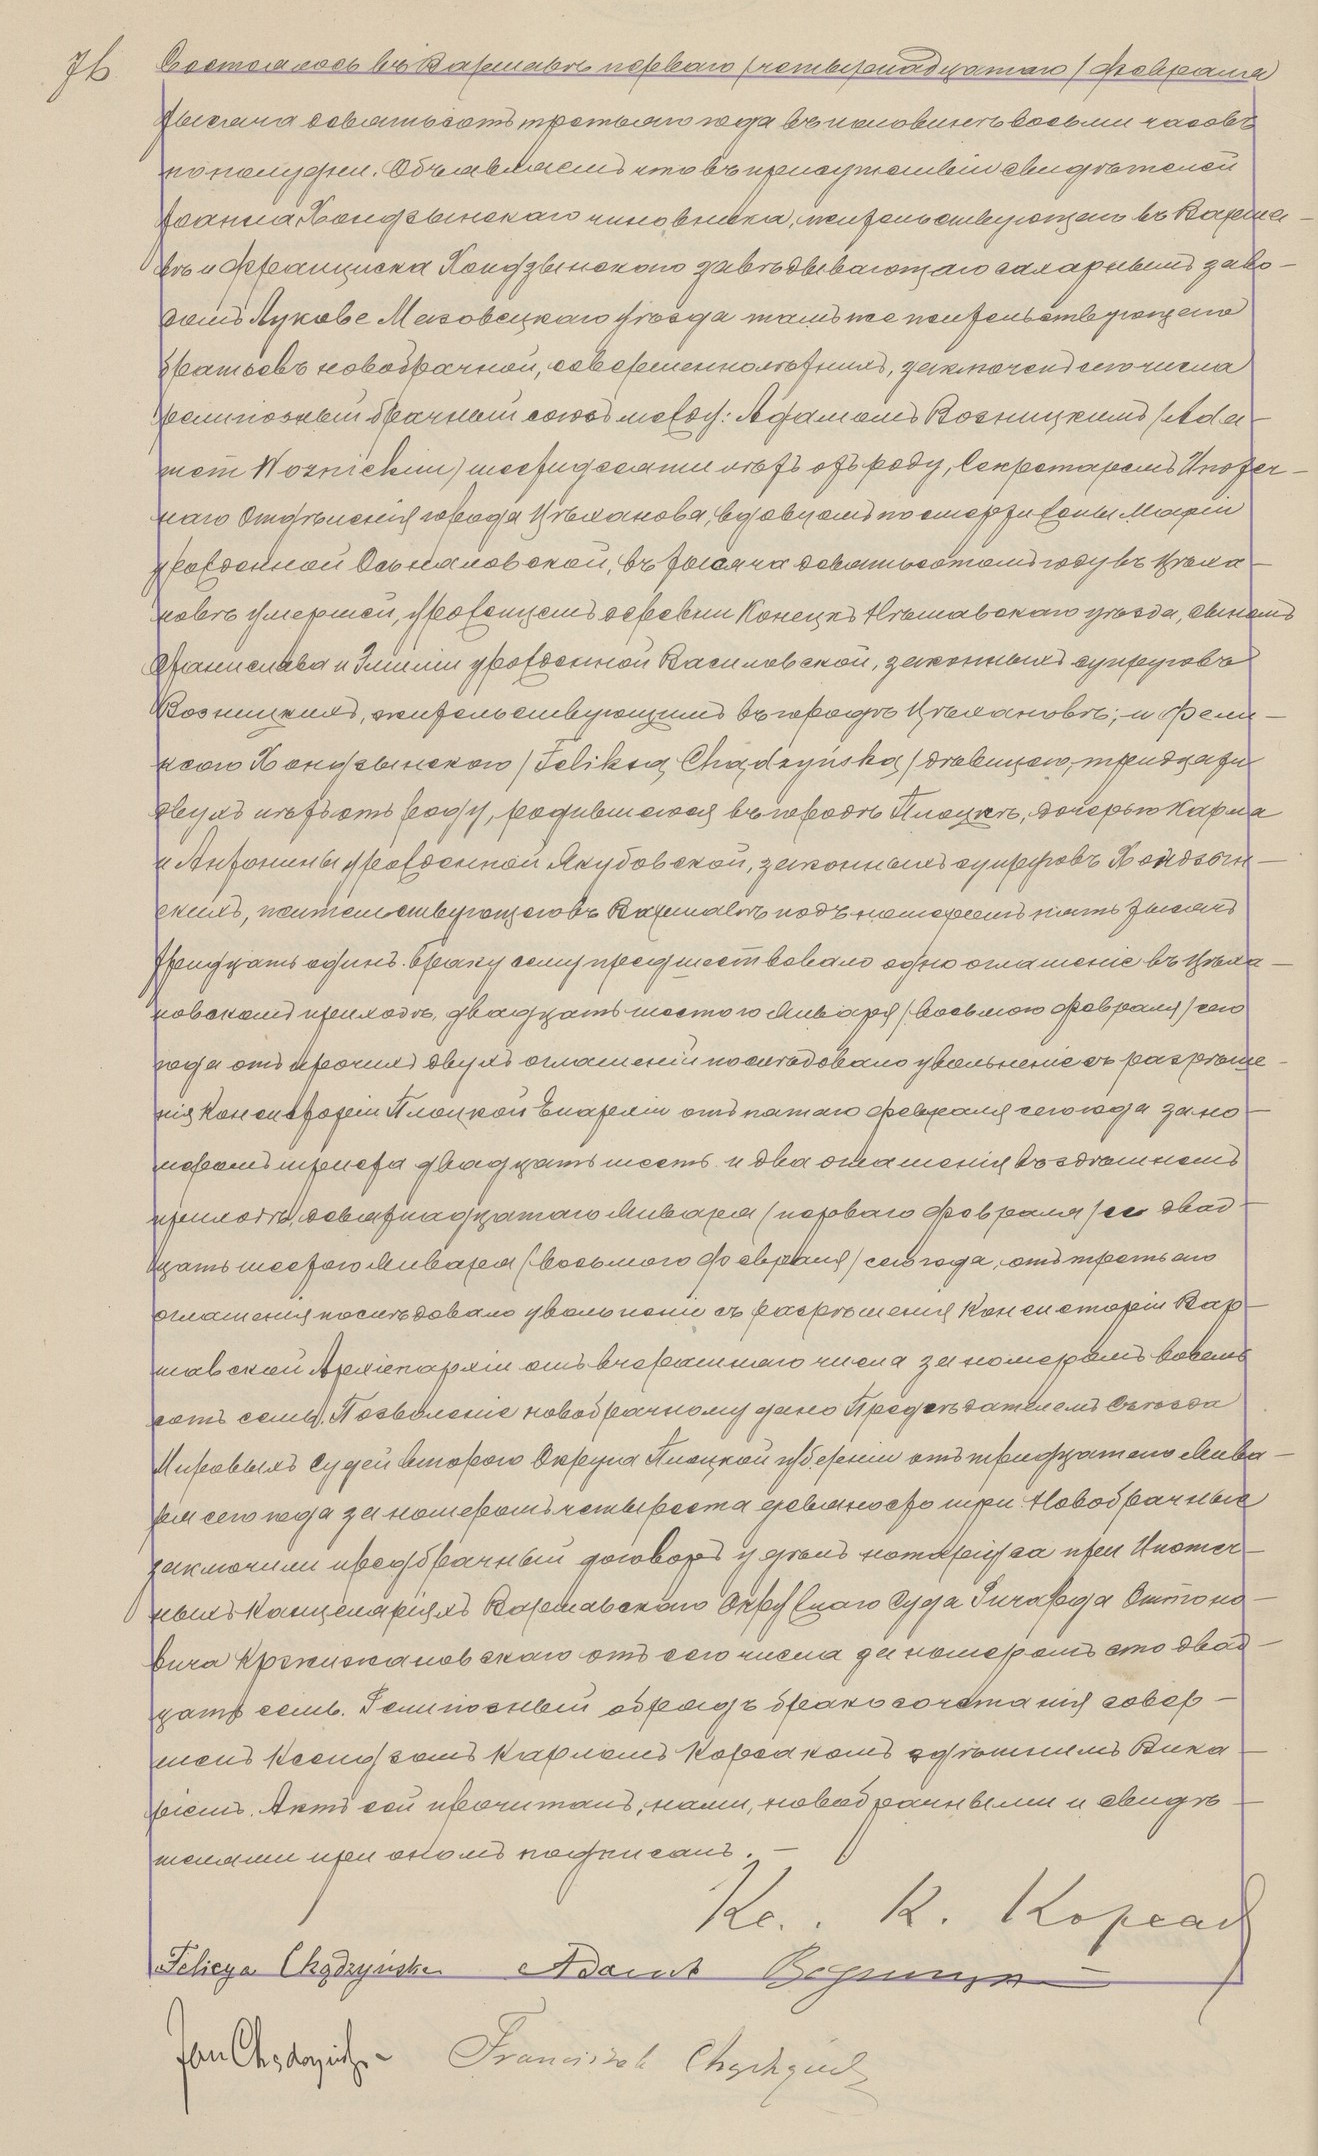 76
Состоялось въ Варшавѣ перваго (четырнадцатаго) Февраля
тысяча девятьсотъ третьяго года въ половинѣ восьми часовъ
по полудни. Объявляемъ что въ присутствіи свидѣтелей
Іоанна Хондзынскаго чиновника, жительствующаго въ Варша-
вѣ и Франциска Хондзынскаго завѣдывающаго сахарнымъ заво-
домъ Лукове Мазовецкаго уѣзда тамъ же жительствующаго
братьевъ новобрачной, совершеннолѣтнихъ, заключенъ сего числа
религіозный брачный союзъ между: Адамомъ Возницкимъ (Ada-
mem Woznickim) шестидесяти лѣтъ отъ роду, Секретаремъ Ипотеч-
наго Отдѣленія города Цѣханова, вдовцомъ по смерти жены Маріи
урожденной Осьмяловской, въ тысяча девятьсотомъ году въ Цѣха-
новѣ умершей, уроженцемъ деревни Конецкъ Нѣшавскаго уѣзда, сыномъ
Станислава и Эмиліи урожденной Василовской, законныхъ супруговъ
Возницкихъ, жительствующимъ въ городѣ Цѣхановѣ; и Фели-
ксою Хондзынскою (Feliksą Chądzyńską) дѣвицею, тридцати
двухъ лѣтъ отъ роду, родившеюся въ городѣ Плоцкѣ, дочерью Карла
и Антонины урожденной Якубовской, законныхъ супруговъ Хондзын-
скихъ, жительствующею въ Варшавѣ подъ номеромъ пять тысячъ
тридцать одинъ. Браку сему предшествовало одно оглашеніе въ Цѣха-
новскомъ приходѣ, двадцать шестого Января (восьмого Февраля) сего
года отъ прочихъ двухъ оглашеній послѣдовало увольненіе съ разрѣше-
нія Консисторіи Плоцкой Епархіи отъ пятаго Февраля сего года за но-
меромъ триста двадцать шесть и два оглашенія въ здѣшнемъ
приходѣ, девятнадцатаго Января (перваго Февраля) и двад-
цать шестого Января (восьмого Февраля) сего года, отъ третьяго
оглашенія послѣдовало увольненіе съ разрѣшенія Консисторіи Вар-
шавской Архіепархіи отъ вчерашняго числа за номеромъ восемь
сотъ семь. Позволеніе новобрачному дано Предсѣдателемъ Съѣзда
Мировыхъ Судей второго Округа Плоцкой губерніи отъ тридцатаго Янва-
ря сего года за номеромъ четыреста девяносто три Новобрачные
заключили предбрачный договоръ у дѣлъ нотаріуса при Ипотеч-
ныхъ Канцеляріяхъ Варшавскаго Окружнаго Суда Ричарда Оттоно-
вича Кржижановскаго отъ сего числа за номеромъ сто двад-
цать семь. Религіозный обрядъ бракосочетанія совер-
шенъ Ксендзомъ Карломъ Корсакомъ здѣшнимъ Вика-
ріемъ. Актъ сей прочитанъ, нами, новобрачными и свидѣ-
телями при ономъ подписанъ.
Кс. К. Корсакъ
Felicya Chądzyńska Adam Возницкі
Jan Chądzyński Franciszek Chądzyński